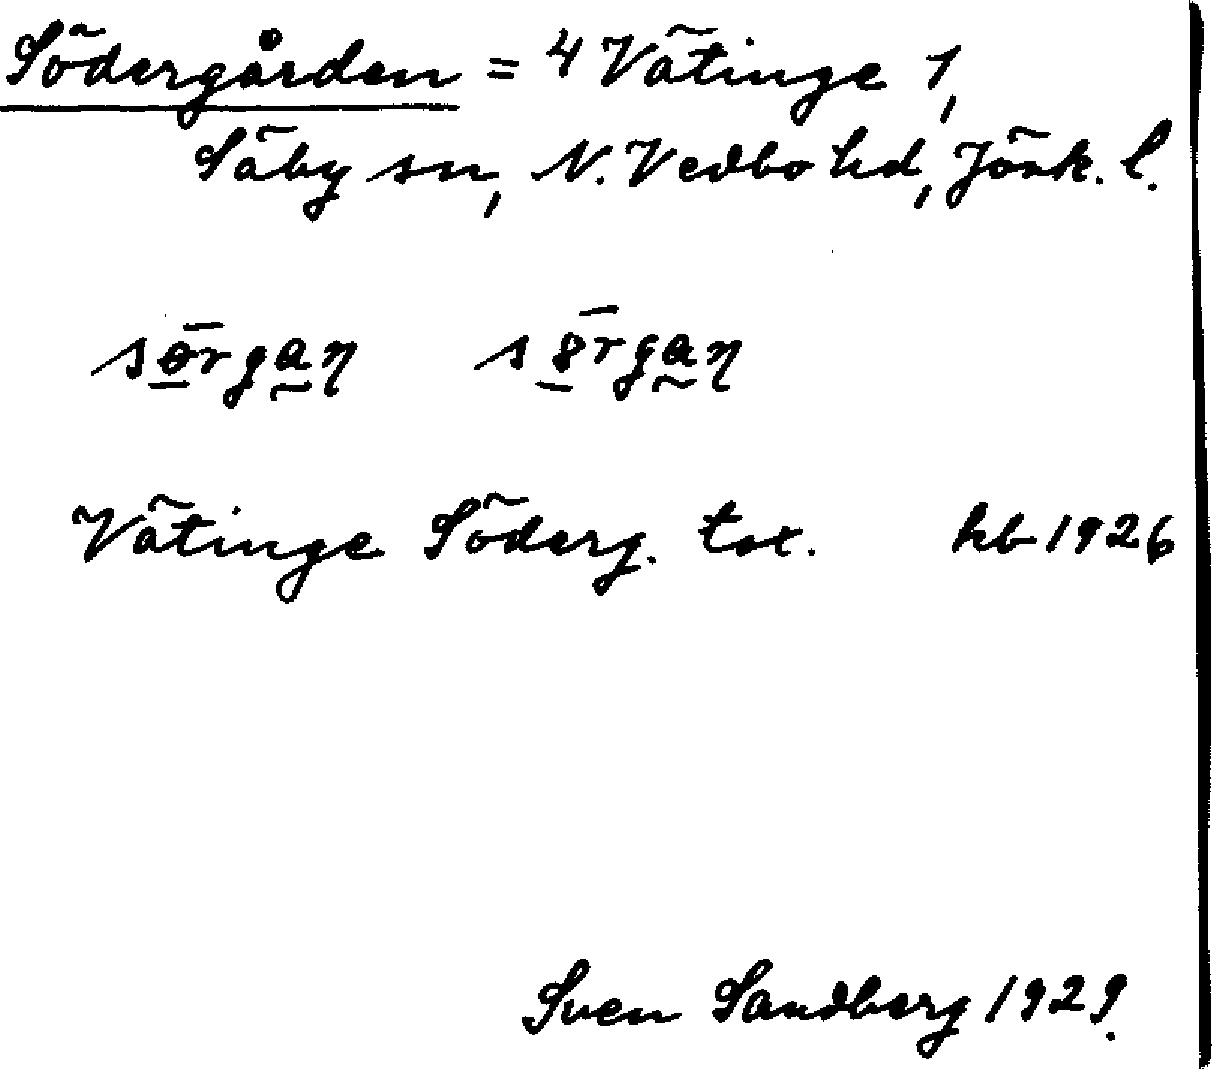 Södergården = 4 Vätinge 1,
Säby sn, N. Vedbo hd, Jönk. l.
Vätinge Söderg. tax. hb 1926
Sven Sandberg 1929.